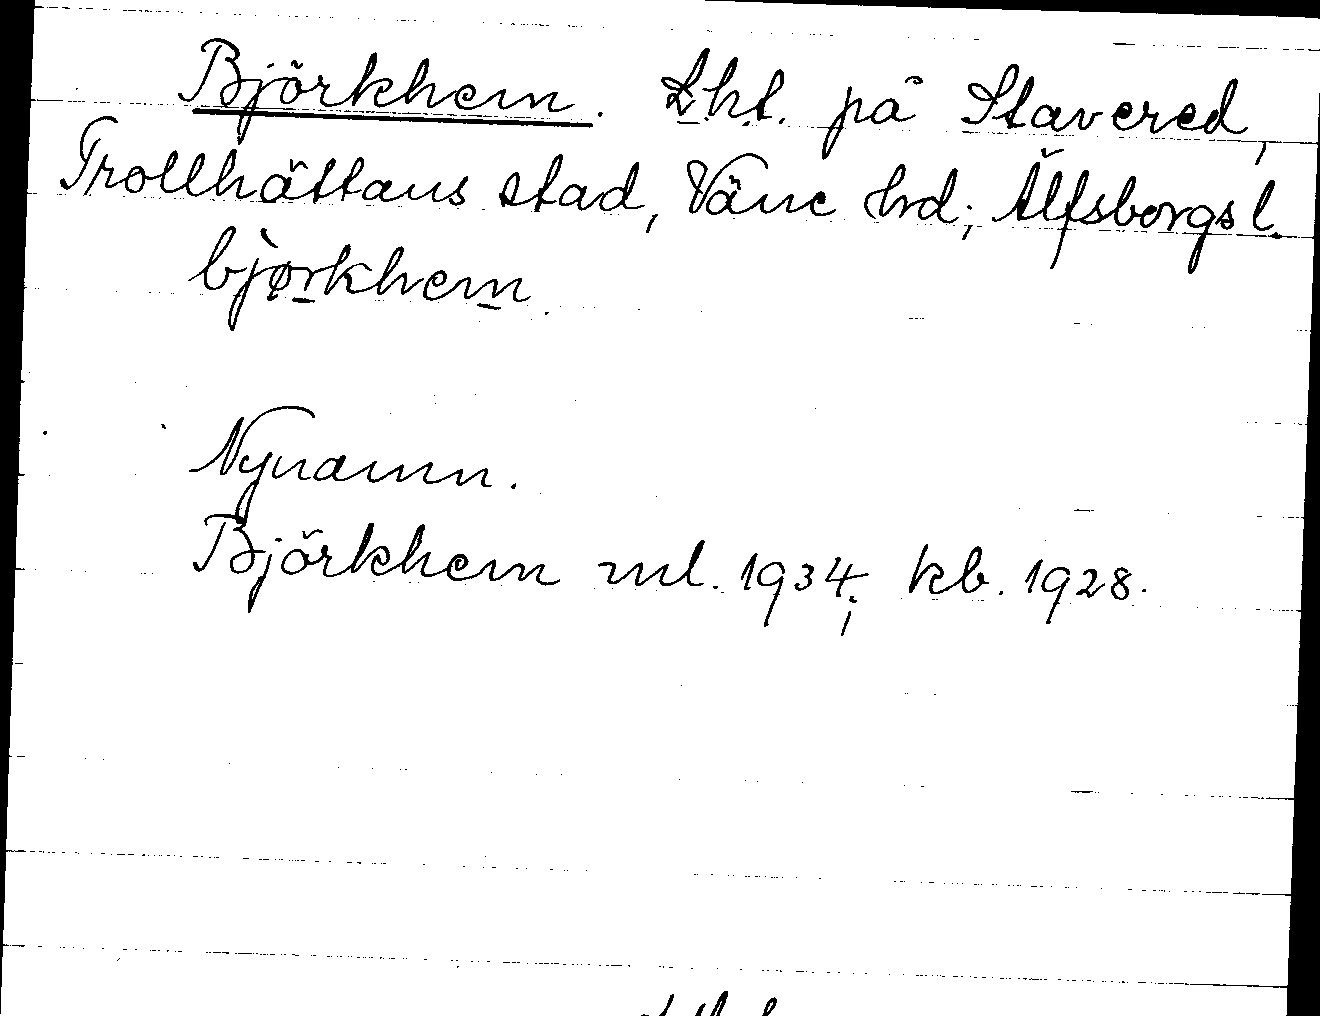 Björkhem. Lht. på Stavered,
Trollhättans stad, Väne hrd; Älfsborgs l.
bjørkhem.
Nynamn.
Björkhem ml. 1934; kb. 1928.